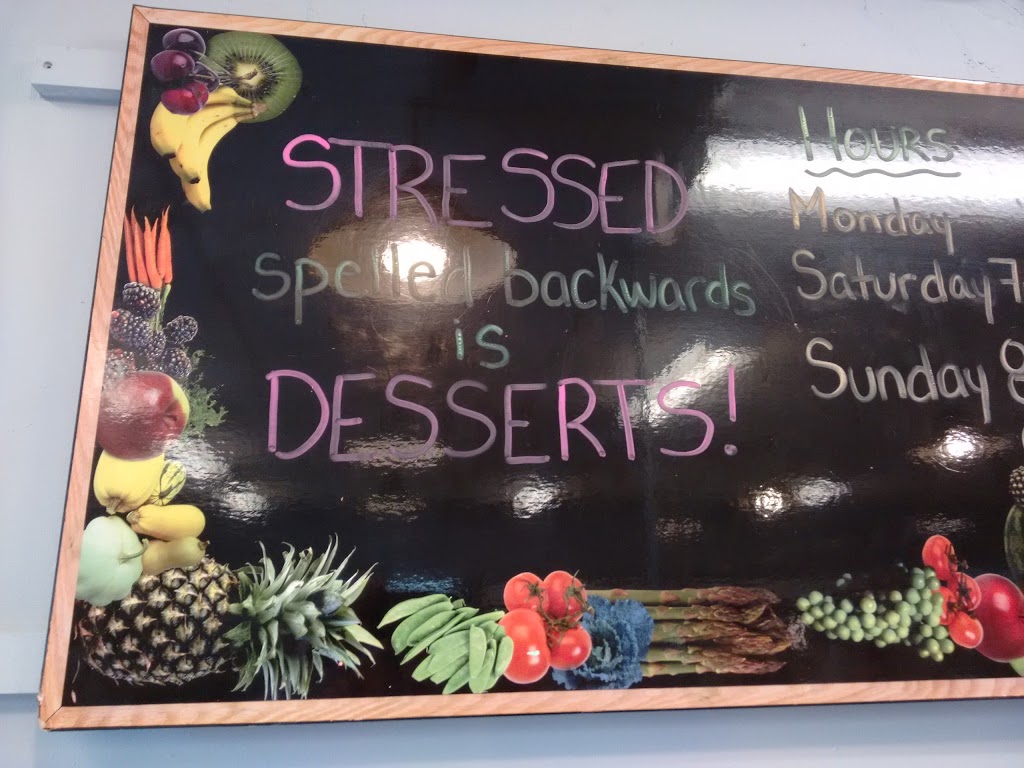 STRESSED
spelled backwards
is
DESSERTS!
Hours
Monday
Saturday 7
Sunday 8